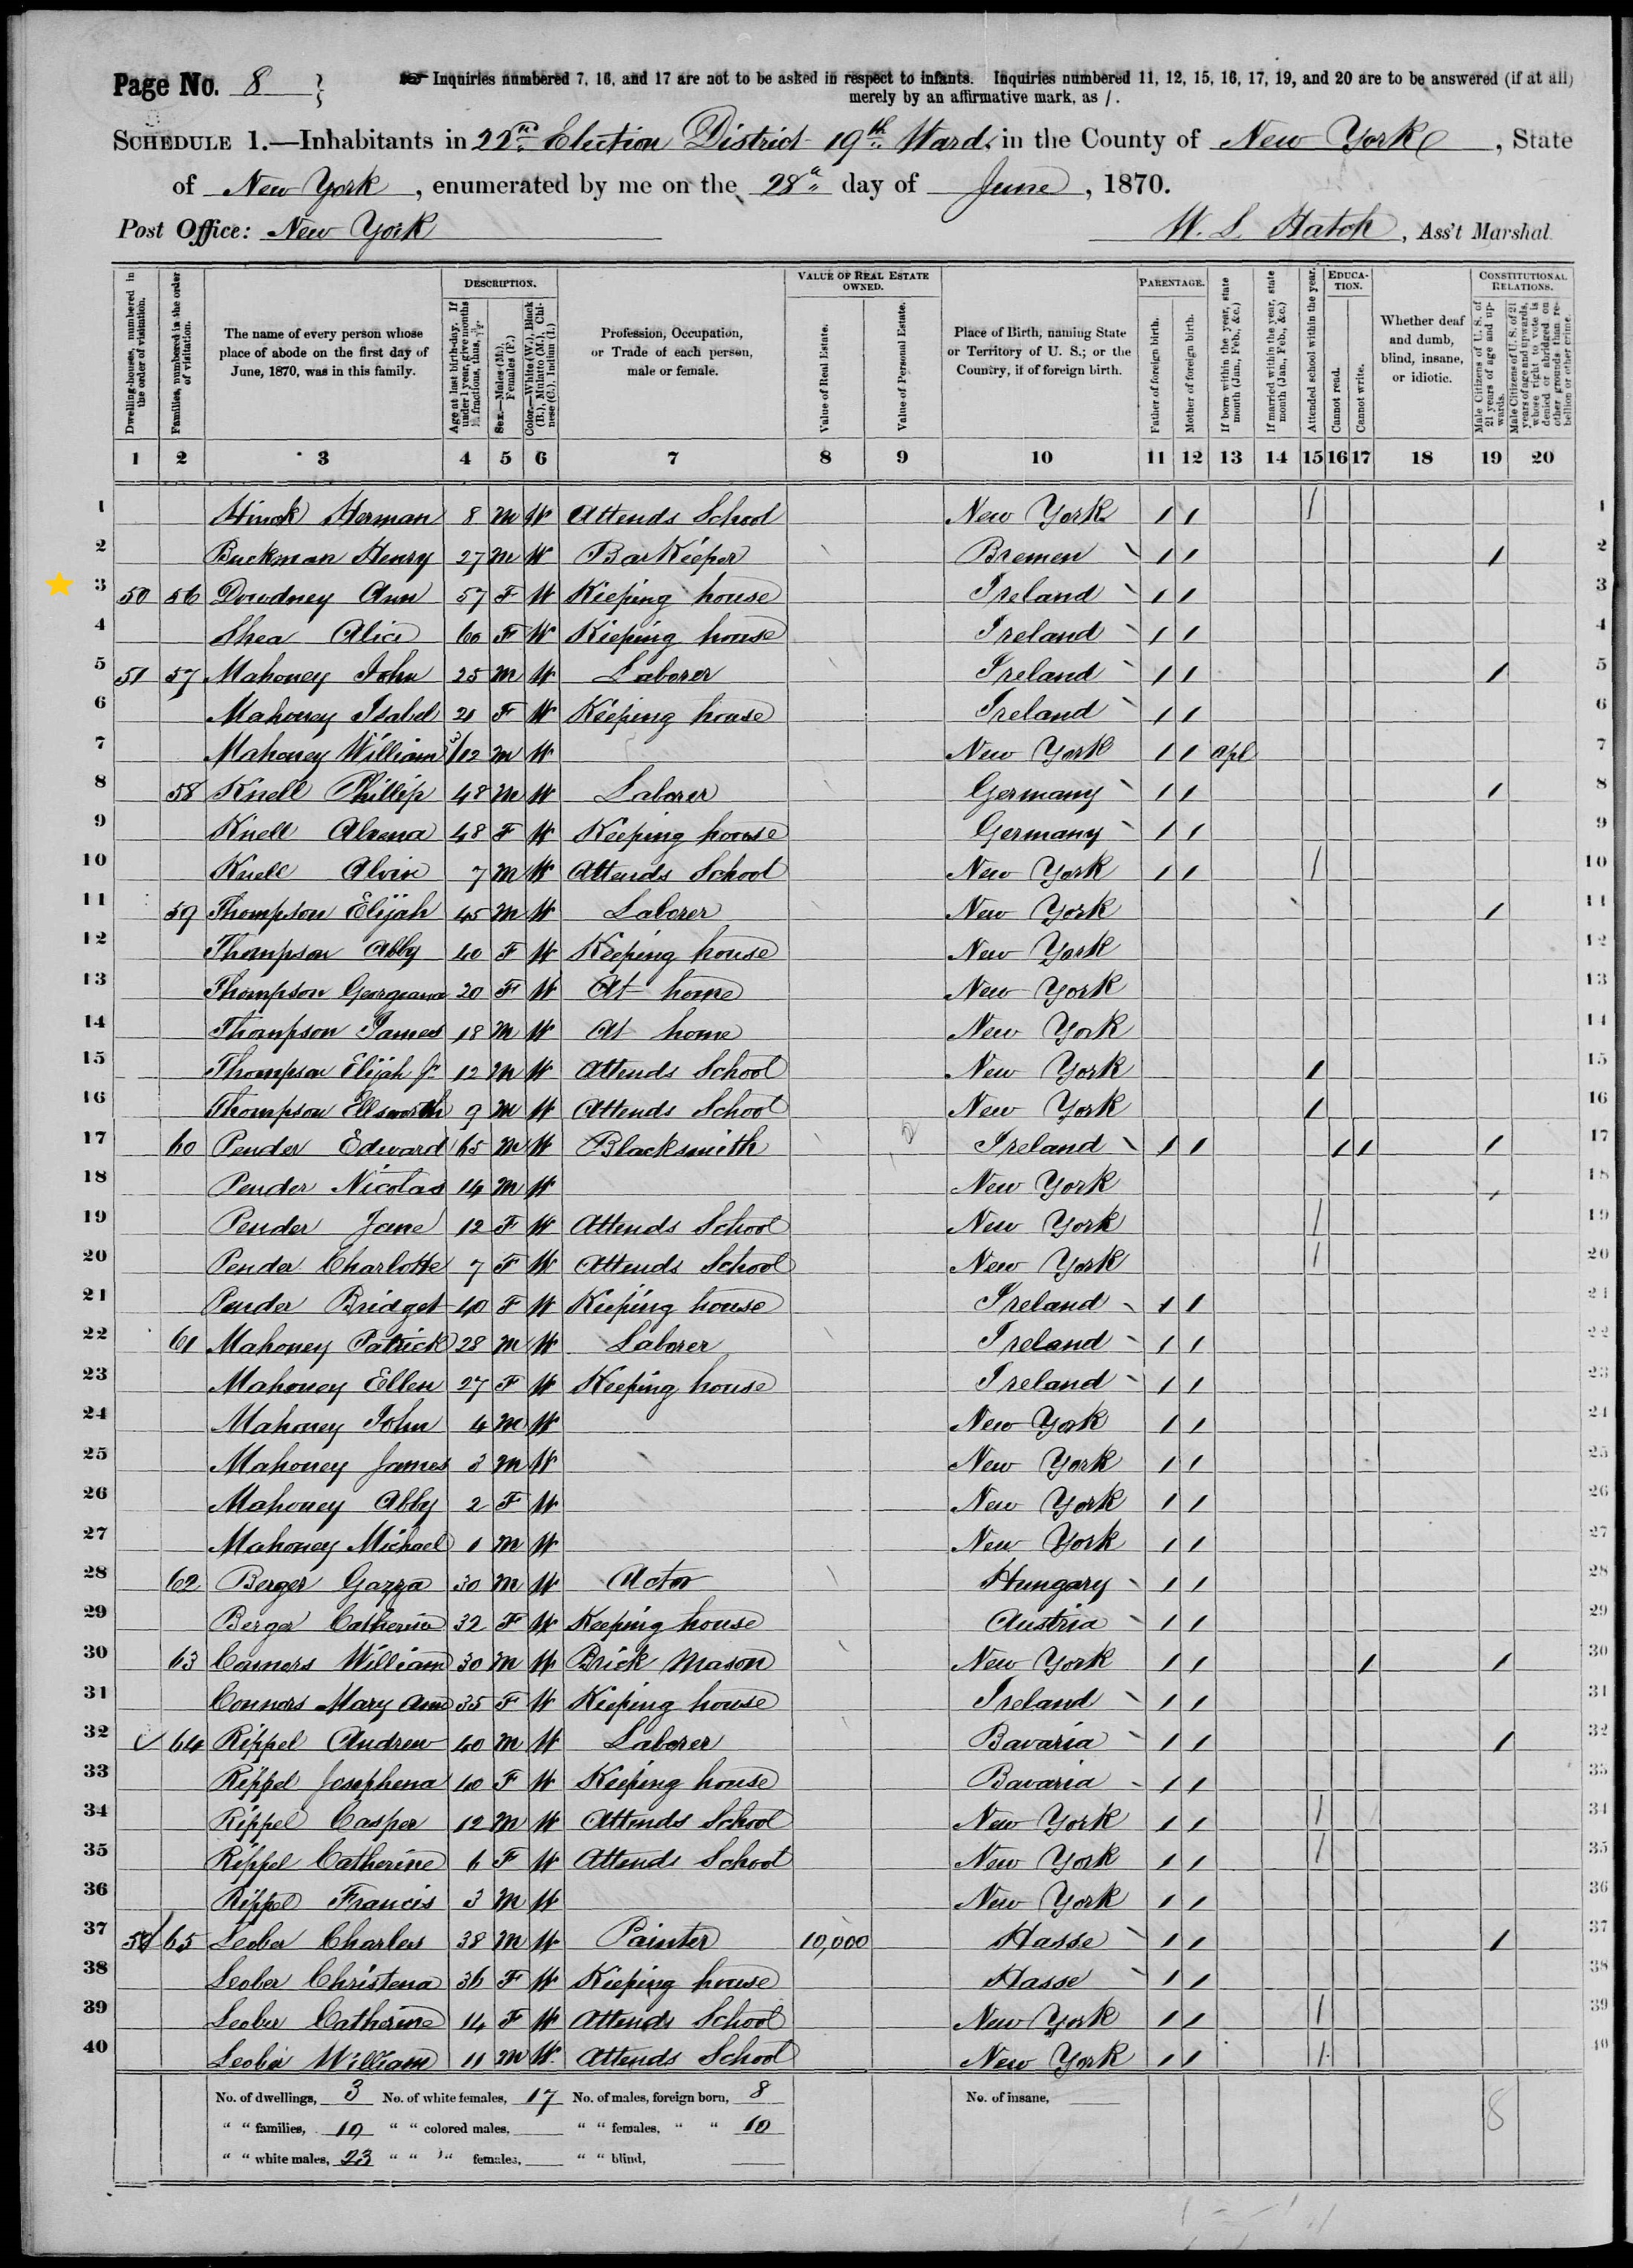 Page No. 8
Inquiries numbered 7, 16, and 17 are not to be asked in respect to infants. Inquiries numbered 11, 12, 15, 16, 17, 19, and 20 are to be answered (if at all)
merely by an affirmative mark, as /.
SCHEDULE 1.—Inhabitants in 22nd Election District 19th Ward, in the County of New York, State
of New York, enumerated by me on the 28th day of June, 1870.
Post Office: New York
W. S. Hatch, Ass't Marshal.
Dwelling-houses, numbered in the order of visitation.
Families, numbered in the order of visitation.
The name of every person whose place of abode on the first day of June, 1870, was in this family.
DESCRIPTION.
Age at last birth-day. If under 1 year, give months in fractions, thus, 3/12.
Sex.—Males (M.), Females (F.)
Color.—White (W.), Black (B.), Mulatto (M.), Chinese (C.), Indian (I.)
Profession, Occupation, or Trade of each person, male or female.
VALUE OF REAL ESTATE OWNED.
Value of Real Estate.
Value of Personal Estate.
Place of Birth, naming State or Territory of U. S.; or the Country, if of foreign birth.
PARENTAGE.
Father of foreign birth.
Mother of foreign birth.
If born within the year, state month (Jan., Feb., &c.)
If married within the year, state month (Jan., Feb., &c.)
Attended school within the year.
EDUCATION.
Cannot read.
Cannot write.
Whether deaf and dumb, blind, insane, or idiotic.
CONSTITUTIONAL RELATIONS.
Male Citizens of U. S. of 21 years of age and upwards.
Male Citizens of U. S. of 21 years of age and upwards, whose right to vote is denied or abridged on other grounds than rebellion or other crime.
1 2 3 4 5 6 7 8 9 10 11 12 13 14 15 16 17 18 19 20
1 Herman 8 M W Attends School New York / / / 1
2 Buckman Henry 27 M W BarKeeper Bremen / / / 2
3 50 56 Dowdney Ann 57 F W Keeping house Ireland / / 3
4 Shea Alice 60 F W Keeping house Ireland / / 4
5 51 57 Mahoney John 25 M W Laborer Ireland / / / 5
6 Mahoney Isabel 21 F W Keeping house Ireland / / 6
7 Mahoney William 3/12 M W New York / / Apl 7
8 58 Knell Phillip 48 M W Laborer Germany / / / 8
9 Knell 48 F W Keeping house Germany / / 9
10 Knell Alvin 7 M W Attends School New York / / / 10
11 59 Thompson Elijah 45 M W Laborer New York / 11
12 Thompson Abby 40 F W Keeping house New York 12
13 Thompson Georgeana 20 F W At home New York 13
14 Thompson James 18 M W At home New York 14
15 Thompson Elijah Jr 12 M W Attends School New York / 15
16 Thompson Ellsworth 9 M W Attends School New York / 16
17 60 Pender Edward 65 M W Blacksmith Ireland / / / / / 17
18 Pender Nicolas 14 M W New York 18
19 Pender Jane 12 F W Attends School New York / 19
20 Pender Charlotte 7 F W Attends School New York / 20
21 Pender Bridget 40 F W Keeping house Ireland / / 21
22 61 Mahoney Patrick 28 M W Laborer Ireland / / 22
23 Mahoney Ellen 27 F W Keeping house Ireland / / 23
24 Mahoney John 4 M W New York / / 24
25 Mahoney James 3 M W New York / / 25
26 Mahoney Abby 2 F W New York / / 26
27 Mahoney Michael 1 M W New York / / 27
28 62 Berger Gazza 30 M W Actor Hungary / / 28
29 Berger Catherine 32 F W Keeping house Austria / / 29
30 63 Connors William 30 M W Brick Mason New York / / / / 30
31 Connors Mary Ann 35 F W Keeping house Ireland / / 31
32 64 Rippel Andrew 40 M W Laborer Bavaria / / / 32
33 Rippel Josephena 40 F W Keeping house Bavaria / / 33
34 Rippel Casper 12 M W Attends School New York / / / 34
35 Rippel Catherine 6 F W Attends School New York / / / 35
36 Rippel Francis 3 M W New York / / 36
37 65 Leober Charles 38 M W Painter 10,000 Hasse / / / 37
38 Leober Christena 36 F W Keeping house Hasse / / 38
39 Leober Catherine 14 F W Attends School New York / / / 39
40 Leober William 11 M W Attends School New York / / / 40
No. of dwellings, 3 No. of white females, 17 No. of males, foreign born, 8 No. of insane,
" " families, 10 " " colored males, " " females, " " 10 8
" " white males, 23 " " " females, " " blind,